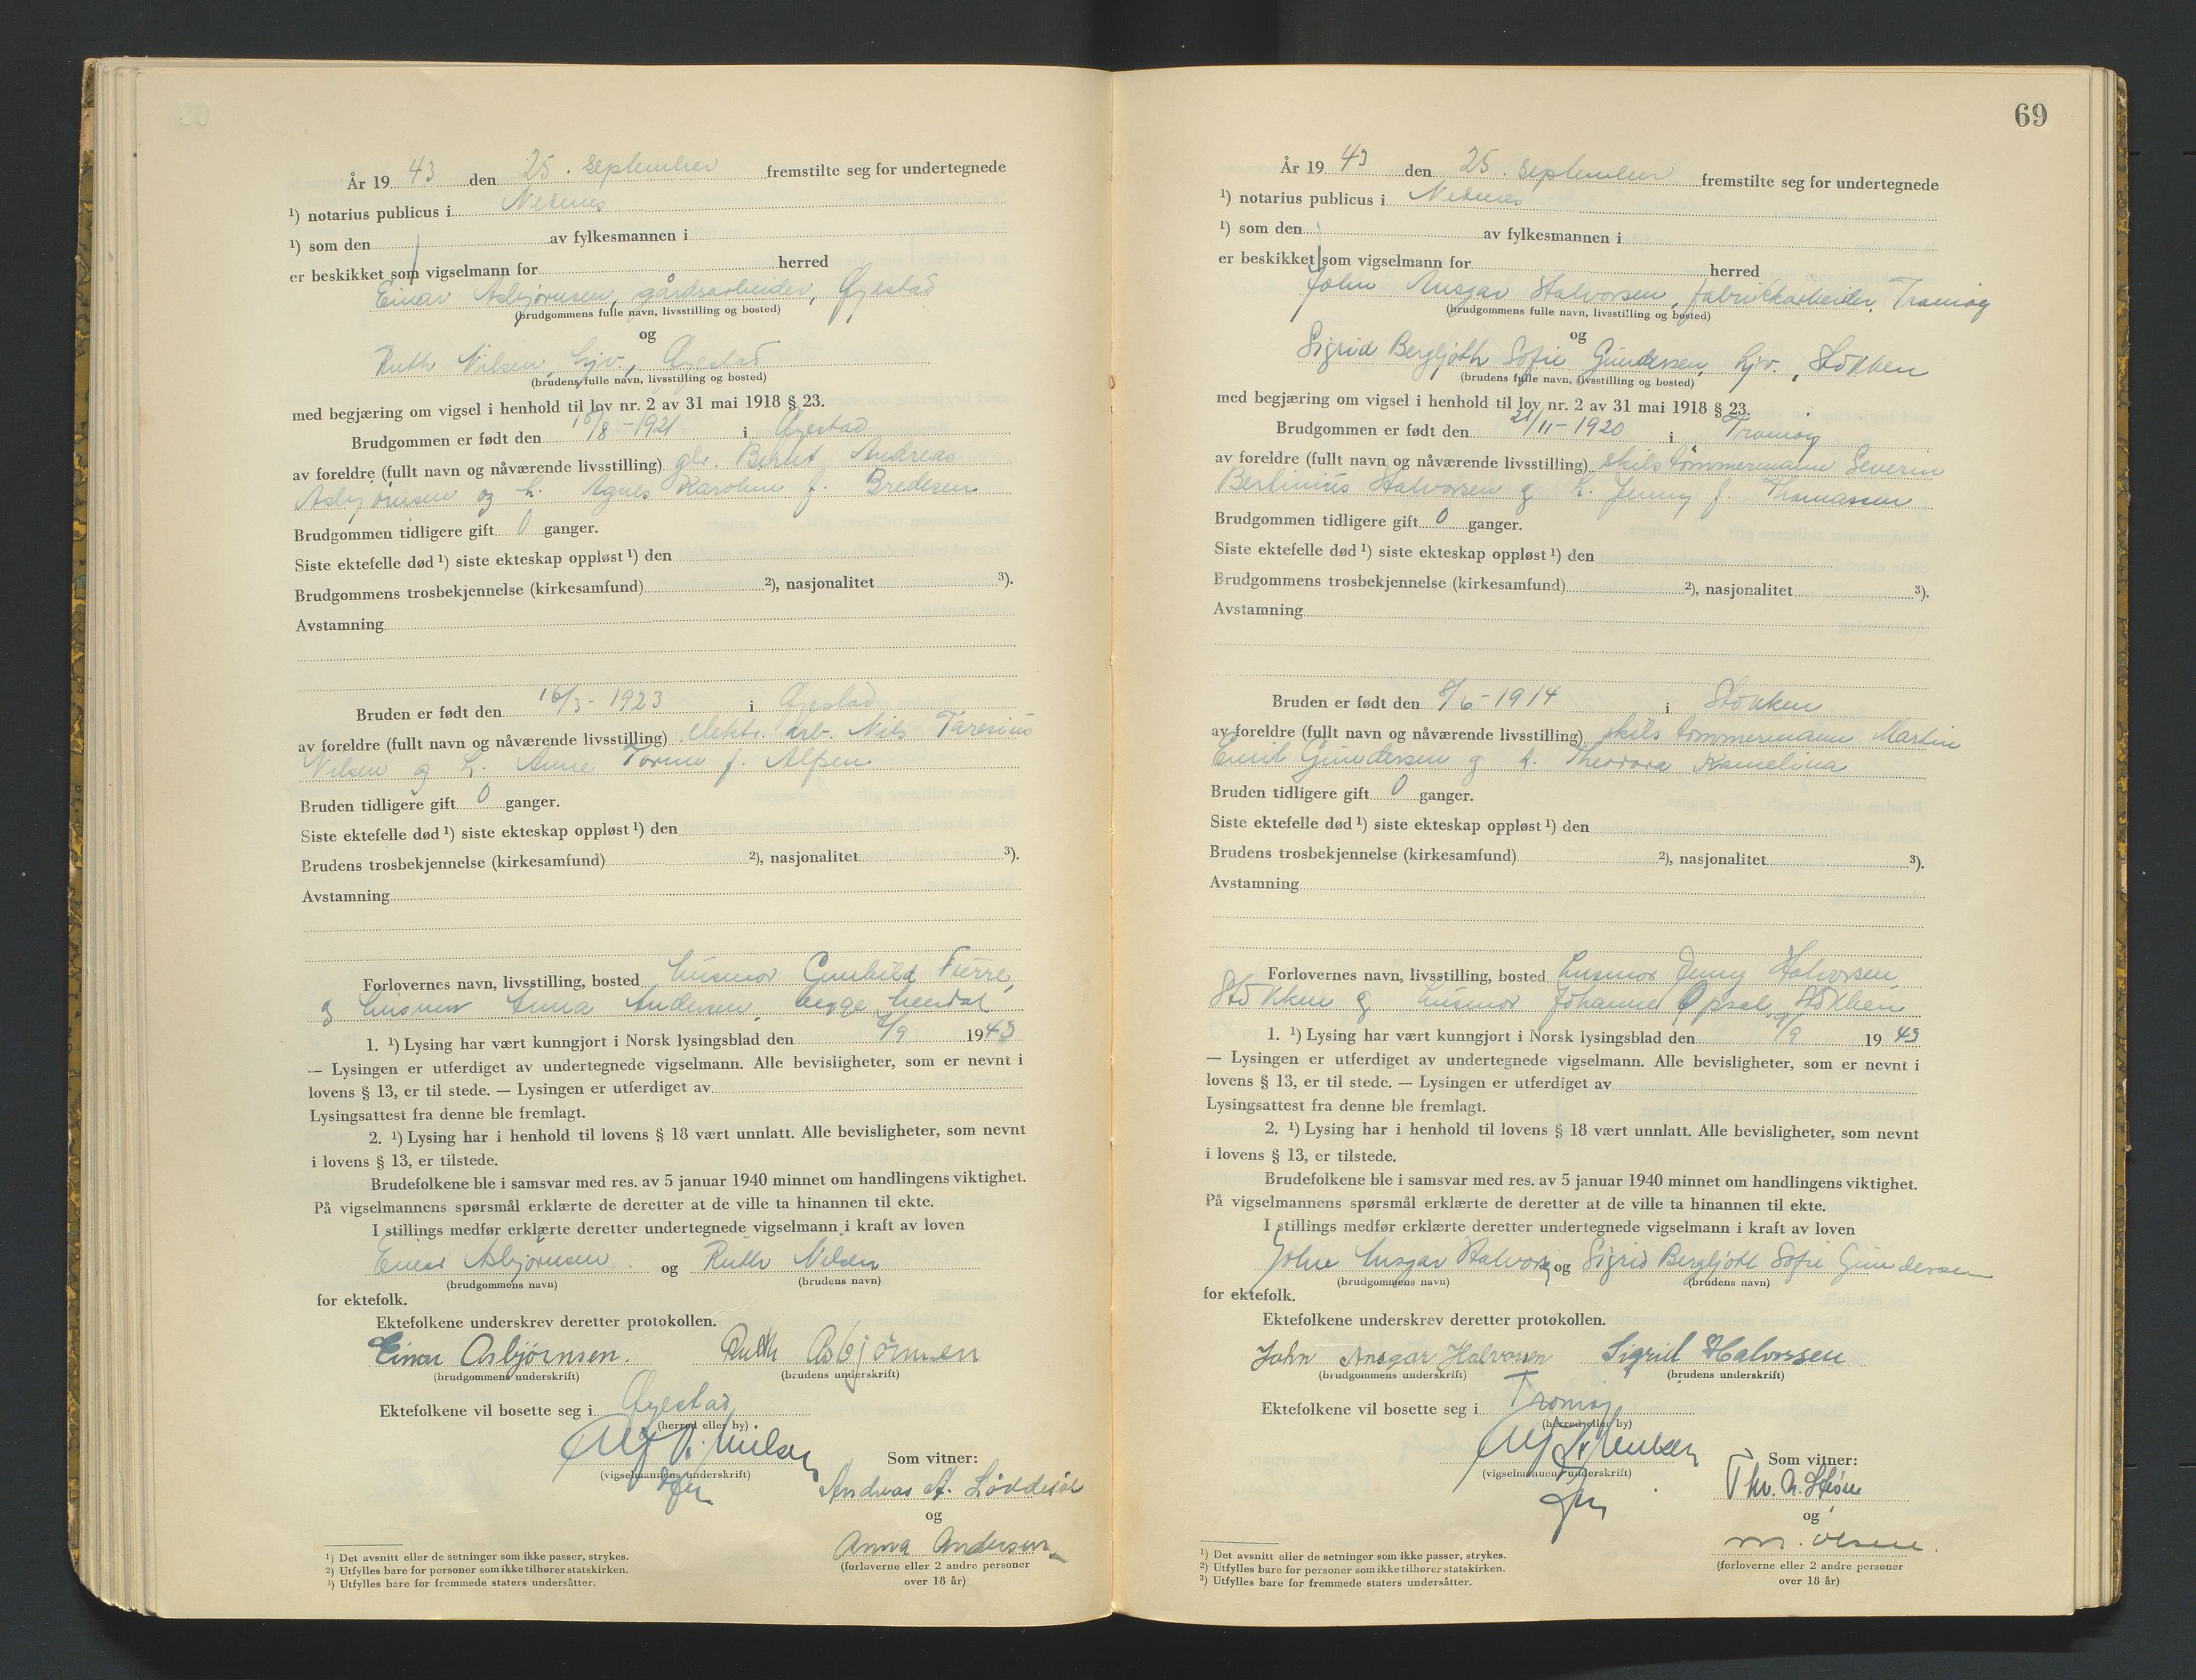 År 19 43 den 25. September fremstilte seg for undertegnede
¹) notarius publicus i Nedenes
¹) som den av fylkesmannen i
er beskikket som vigselmann for herred
Einar Asbjørnsen, gårdsarbeider, Øyestad
(brudgommens fulle navn, livsstilling og bosted)
og
Ruth Nilsen, hjv., Øyestad
(brudens fulle navn, livsstilling og bosted)
med begjæring om vigsel i henhold til lov nr. 2 av 31 mai 1918 § 23.
Brudgommen er født den /8 - 1921 i Øyestad
av foreldre (fullt navn og nåværende livsstilling) Andreas
Asbjørnsen og h. Agnes Karoline f. Bredesen
Brudgommen tidligere gift 0 ganger.
Siste ektefelle død ¹) siste ekteskap oppløst ¹) den
Brudgommens trosbekjennelse (kirkesamfund) ²), nasjonalitet ³).
Avstamning
Bruden er født den 16/3 - 1923 i Øyestad
av foreldre (fullt navn og nåværende livsstilling) elektr. arb. Nils
Nilsen og h. Anne f.
Bruden tidligere gift 0 ganger.
Siste ektefelle død ¹) siste ekteskap oppløst ¹) den
Brudens trosbekjennelse (kirkesamfund) ²), nasjonalitet ³).
Avstamning
Forlovernes navn, livsstilling, bosted husmor Gunhild
og husmor Anna Andersen, begge
1. ¹) Lysing har vært kunngjort i Norsk lysingsblad den /9 1943
— Lysingen er utferdiget av undertegnede vigselmann. Alle bevisligheter, som er nevnt i
lovens § 13, er til stede. — Lysingen er utferdiget av
Lysingsattest fra denne ble fremlagt.
2. ¹) Lysing har i henhold til lovens § 18 vært unnlatt. Alle bevisligheter, som nevnt
i lovens § 13, er tilstede.
Brudefolkene ble i samsvar med res. av 5 januar 1940 minnet om handlingens viktighet.
På vigselmannens spørsmål erklærte de deretter at de ville ta hinannen til ekte.
I stillings medfør erklærte deretter undertegnede vigselmann i kraft av loven
Einar Asbjørnsen og Ruth Nilsen
(brudgommens navn) (brudens navn)
for ektefolk.
Ektefolkene underskrev deretter protokollen.
Einar Asbjørnsen. Ruth Asbjørnsen
(brudgommens underskrift) (brudens underskrift)
Ektefolkene vil bosette seg i Øyestad
(herred eller by)
Som vitner:
(vigselmannens underskrift)
Andreas A. Løddesøl
og
Anna Andersen
(forloverne eller 2 andre personer
over 18 år)
¹) Det avsnitt eller de setninger som ikke passer, strykes.
²) Utfylles bare for personer som ikke tilhører statskirken.
³) Utfylles bare for fremmede staters undersåtter.
69
År 19 43 den 25. September fremstilte seg for undertegnede
¹) notarius publicus i Nedenes
¹) som den av fylkesmannen i
er beskikket som vigselmann for herred
John Ansgar Halvorsen, fabrikkarbeider, Tromøy
(brudgommens fulle navn, livsstilling og bosted)
og
Sigrid Bergljoth Sofie Gundersen, hjv., Stokken
(brudens fulle navn, livsstilling og bosted)
med begjæring om vigsel i henhold til lov nr. 2 av 31 mai 1918 § 23.
Brudgommen er født den 21/11 - 1920 i Tromøy
av foreldre (fullt navn og nåværende livsstilling) skibstømmermann Severin
Bertinius Halvorsen og h. Jenny f. Thomassen
Brudgommen tidligere gift 0 ganger.
Siste ektefelle død ¹) siste ekteskap oppløst ¹) den
Brudgommens trosbekjennelse (kirkesamfund) ²), nasjonalitet ³).
Avstamning
Bruden er født den 8/6 - 1914 i Stokken
av foreldre (fullt navn og nåværende livsstilling) skibstømmermann Martin
Emil Gundersen og h. Theodora Kamelina
Bruden tidligere gift 0 ganger.
Siste ektefelle død ¹) siste ekteskap oppløst ¹) den
Brudens trosbekjennelse (kirkesamfund) ²), nasjonalitet ³).
Avstamning
Forlovernes navn, livsstilling, bosted husmor Jenny Halvorsen,
Stokken og husmor Johanne Opsal, Stokken
1. ¹) Lysing har vært kunngjort i Norsk lysingsblad den 9/9 19 43
— Lysingen er utferdiget av undertegnede vigselmann. Alle bevisligheter, som er nevnt i
lovens § 13, er til stede. — Lysingen er utferdiget av
Lysingsattest fra denne ble fremlagt.
2. ¹) Lysing har i henhold til lovens § 18 vært unnlatt. Alle bevisligheter, som nevnt
i lovens § 13, er tilstede.
Brudefolkene ble i samsvar med res. av 5 januar 1940 minnet om handlingens viktighet.
På vigselmannens spørsmål erklærte de deretter at de ville ta hinannen til ekte.
I stillings medfør erklærte deretter undertegnede vigselmann i kraft av loven
John Ansgar Halvorsen og Sigrid Bergljott Sofie Gundersen
(brudgommens navn) (brudens navn)
for ektefolk.
Ektefolkene underskrev deretter protokollen.
John Ansgar Halvorsen Sigrid Halvorsen
(brudgommens underskrift) (brudens underskrift)
Ektefolkene vil bosette seg i Tromøy
(herred eller by)
Som vitner:
(vigselmannens underskrift)
og
M. Olsen.
(forloverne eller 2 andre personer
over 18 år)
¹) Det avsnitt eller de setninger som ikke passer, strykes.
²) Utfylles bare for personer som ikke tilhører statskirken.
³) Utfylles bare for fremmede staters undersåtter.